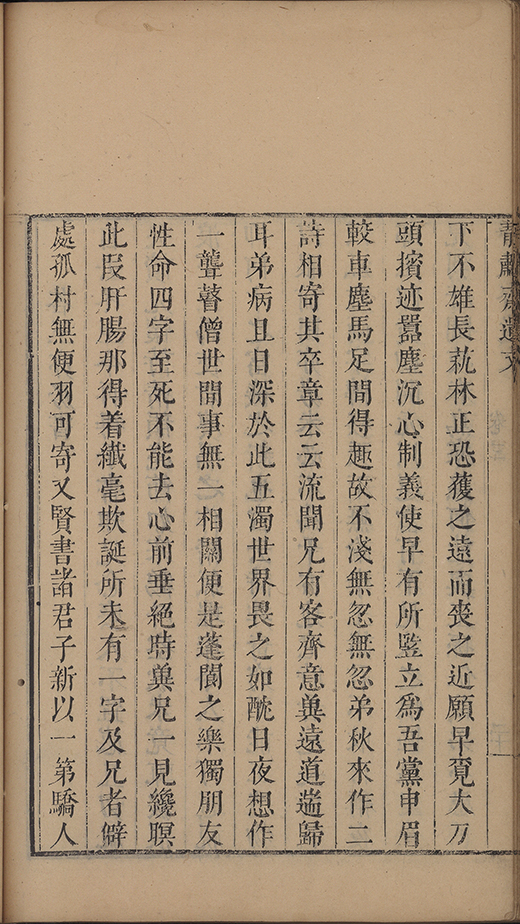 靜嘯齋遺文
下不雄長萟林正恐蒦之遠而喪之近願早覔大刀
頭擯迹囂塵沉心制義使早有所豎立爲吾黨申眉
較車塵馬足間得趣故不淺無忽無忽弟秋來作二
詩相寄其卒章云云流聞兄有客齊意與遠道耑歸
耳弟病且日深於此五濁世界畏之如酖日夜想作
一聾瞽僧世間事無一相關便是蓬閬之樂獨朋友
性命四字至死不能去心前垂絕時與兄一見纔瞑
此叚肝腸那得着纖毫欺誕所未有一字及兄者僻
處孤村無便羽可寄又賢書諸君子新以一第驕人